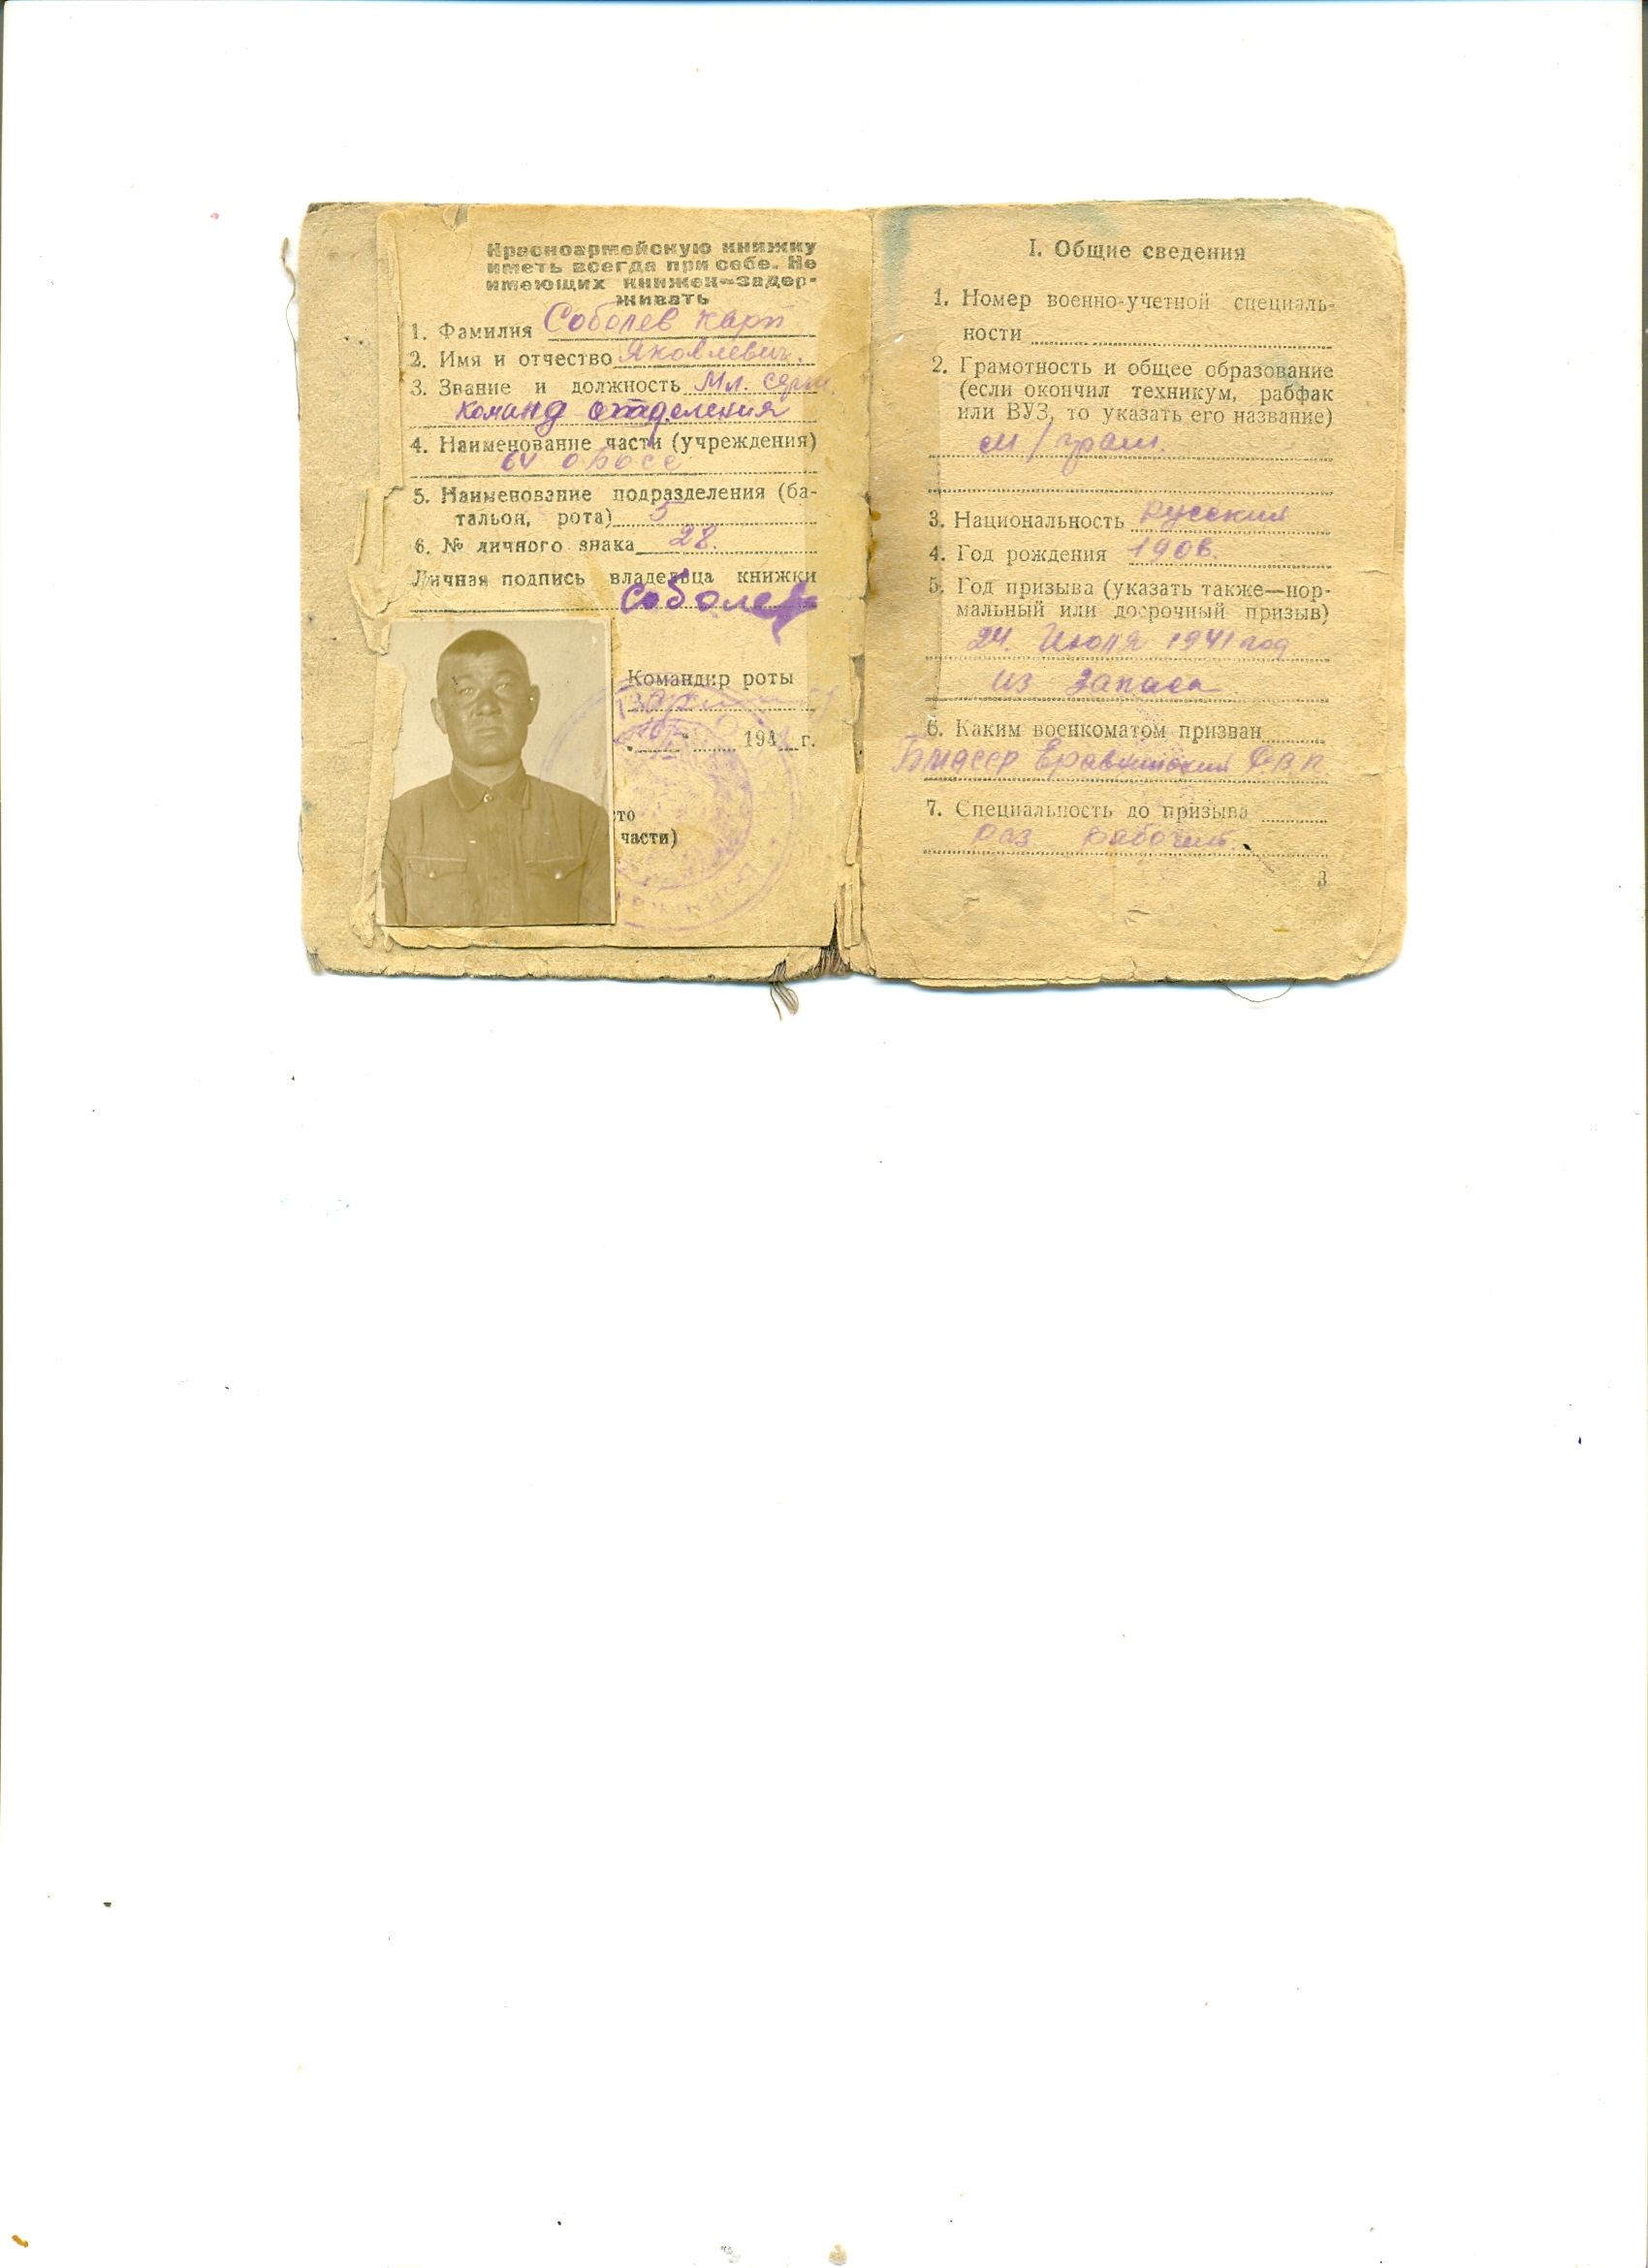 Красноармейскую книжку
иметь всегда при себе. Не
имеющих книжек—задер-
живать
1. Фамилия Соболев Карп
2. Имя и отчество Яковлевич.
3. Звание и должность Мл. серж.
команд отделения
4. Наименование части (учреждения)
64
5. Наименование подразделения (ба-
тальон, рота) 5
6. № личного знака 28.
Личная подпись владельца книжки
Соболев
Командир роты
194 г.
сто
части)
I. Общие сведения
1. Номер военно-учетной специаль-
ности
2. Грамотность и общее образование
(если окончил техникум, рабфак
или ВУЗ, то указать его название)
м/грам.
3. Национальность Русский
4. Год рождения 1906.
5. Год призыва (указать также—нор-
мальный или досрочный призыв)
24. Июля 1941 год
из запаса
6. Каким военкоматом призван
БМАССР Еравнинский
7. Специальность до призыва
Раз рабочий.
3